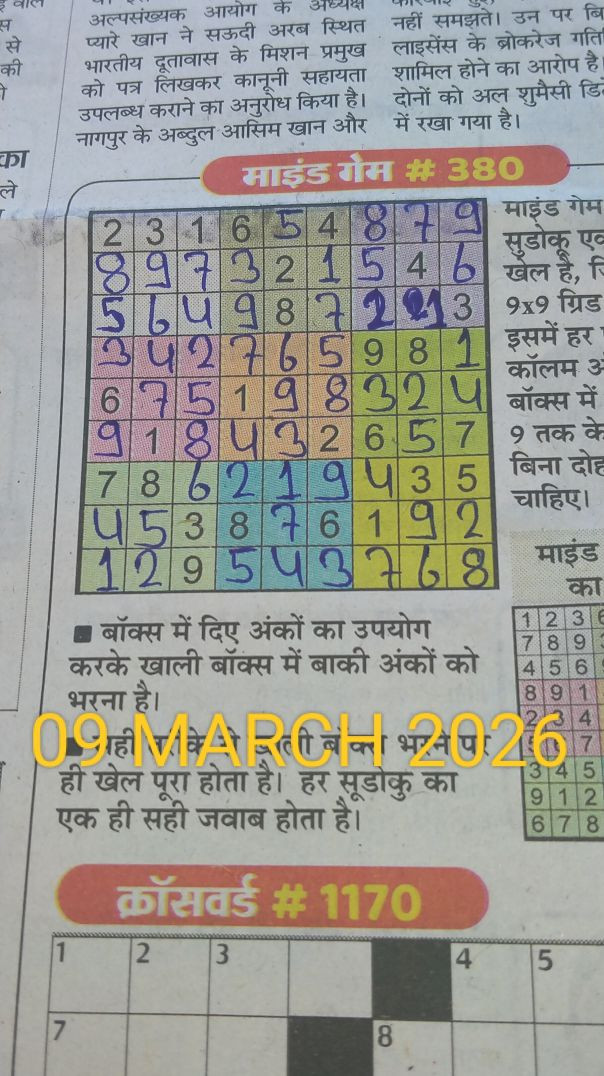 अल्पसंख्यक आयोग के अध्यक्ष
प्यारे खान ने सऊदी अरब स्थित
भारतीय दूतावास के मिशन प्रमुख
को पत्र लिखकर कानूनी सहायता
उपलब्ध कराने का अनुरोध किया है।
नागपुर के अब्दुल आसिम खान और
नहीं समझते। उन पर
लाइसेंस के ब्रोकरेज
शामिल होने का आरोप है
दोनों को अल शुमैसी
में रखा गया है।
माइंड गेम # 380
2 3 1 6 5 4 8 7 9
8 9 7 3 2 1 5 4 6
5 6 4 9 8 7 2 1 3
3 4 2 7 6 5 9 8 1
6 7 5 1 9 8 3 2 4
9 1 8 4 3 2 6 5 7
7 8 6 2 1 9 4 3 5
4 5 3 8 7 6 1 9 2
1 2 9 5 4 3 7 6 8
माइंड गेम
सुडोकू
खेल है,
9x9 ग्रिड
इसमें हर
कॉलम
बॉक्स में
9 तक के
बिना
चाहिए।
माइंड
का
1 2 3 6
7 8 9
4 5 6
8 9 1
2 3 4
7
3 4 5
9 1 2
6 7 8
बॉक्स में दिए अंकों का उपयोग
करके खाली बॉक्स में बाकी अंकों को
भरना है।
09 MARCH 2026
ही खेल पूरा होता है। हर सूडोकु का
एक ही सही जवाब होता है।
क्रॉसवर्ड # 1170
1 2 3 4 5
7 8